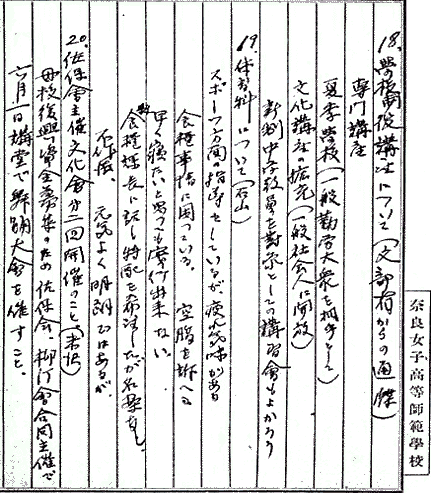 奈良女子高等師範學校
18. 學校開放講座について(文部省からの通牒)
専門講座
夏季學校(一般勤労大衆を相手として)
文化講座の拡充(一般社会人に開放)
新制中学教員を対象としての講習會もよかろう
19. 体育科について(石山)
スポーツ方面の指導をしているが疲れ気味がある
食糧事情に困っている。空腹を訴へる
早く寝たいと思っても実行出来ない。
食糧課長に話し特配を希望したが
元気よく明朗ではあるが
20. 佐保會主催文化會第二回開催のこと(米沢)
母校復興資金募集のため佐保会、會合同主催で
六月一日講堂で舞踊大會を催すこと。